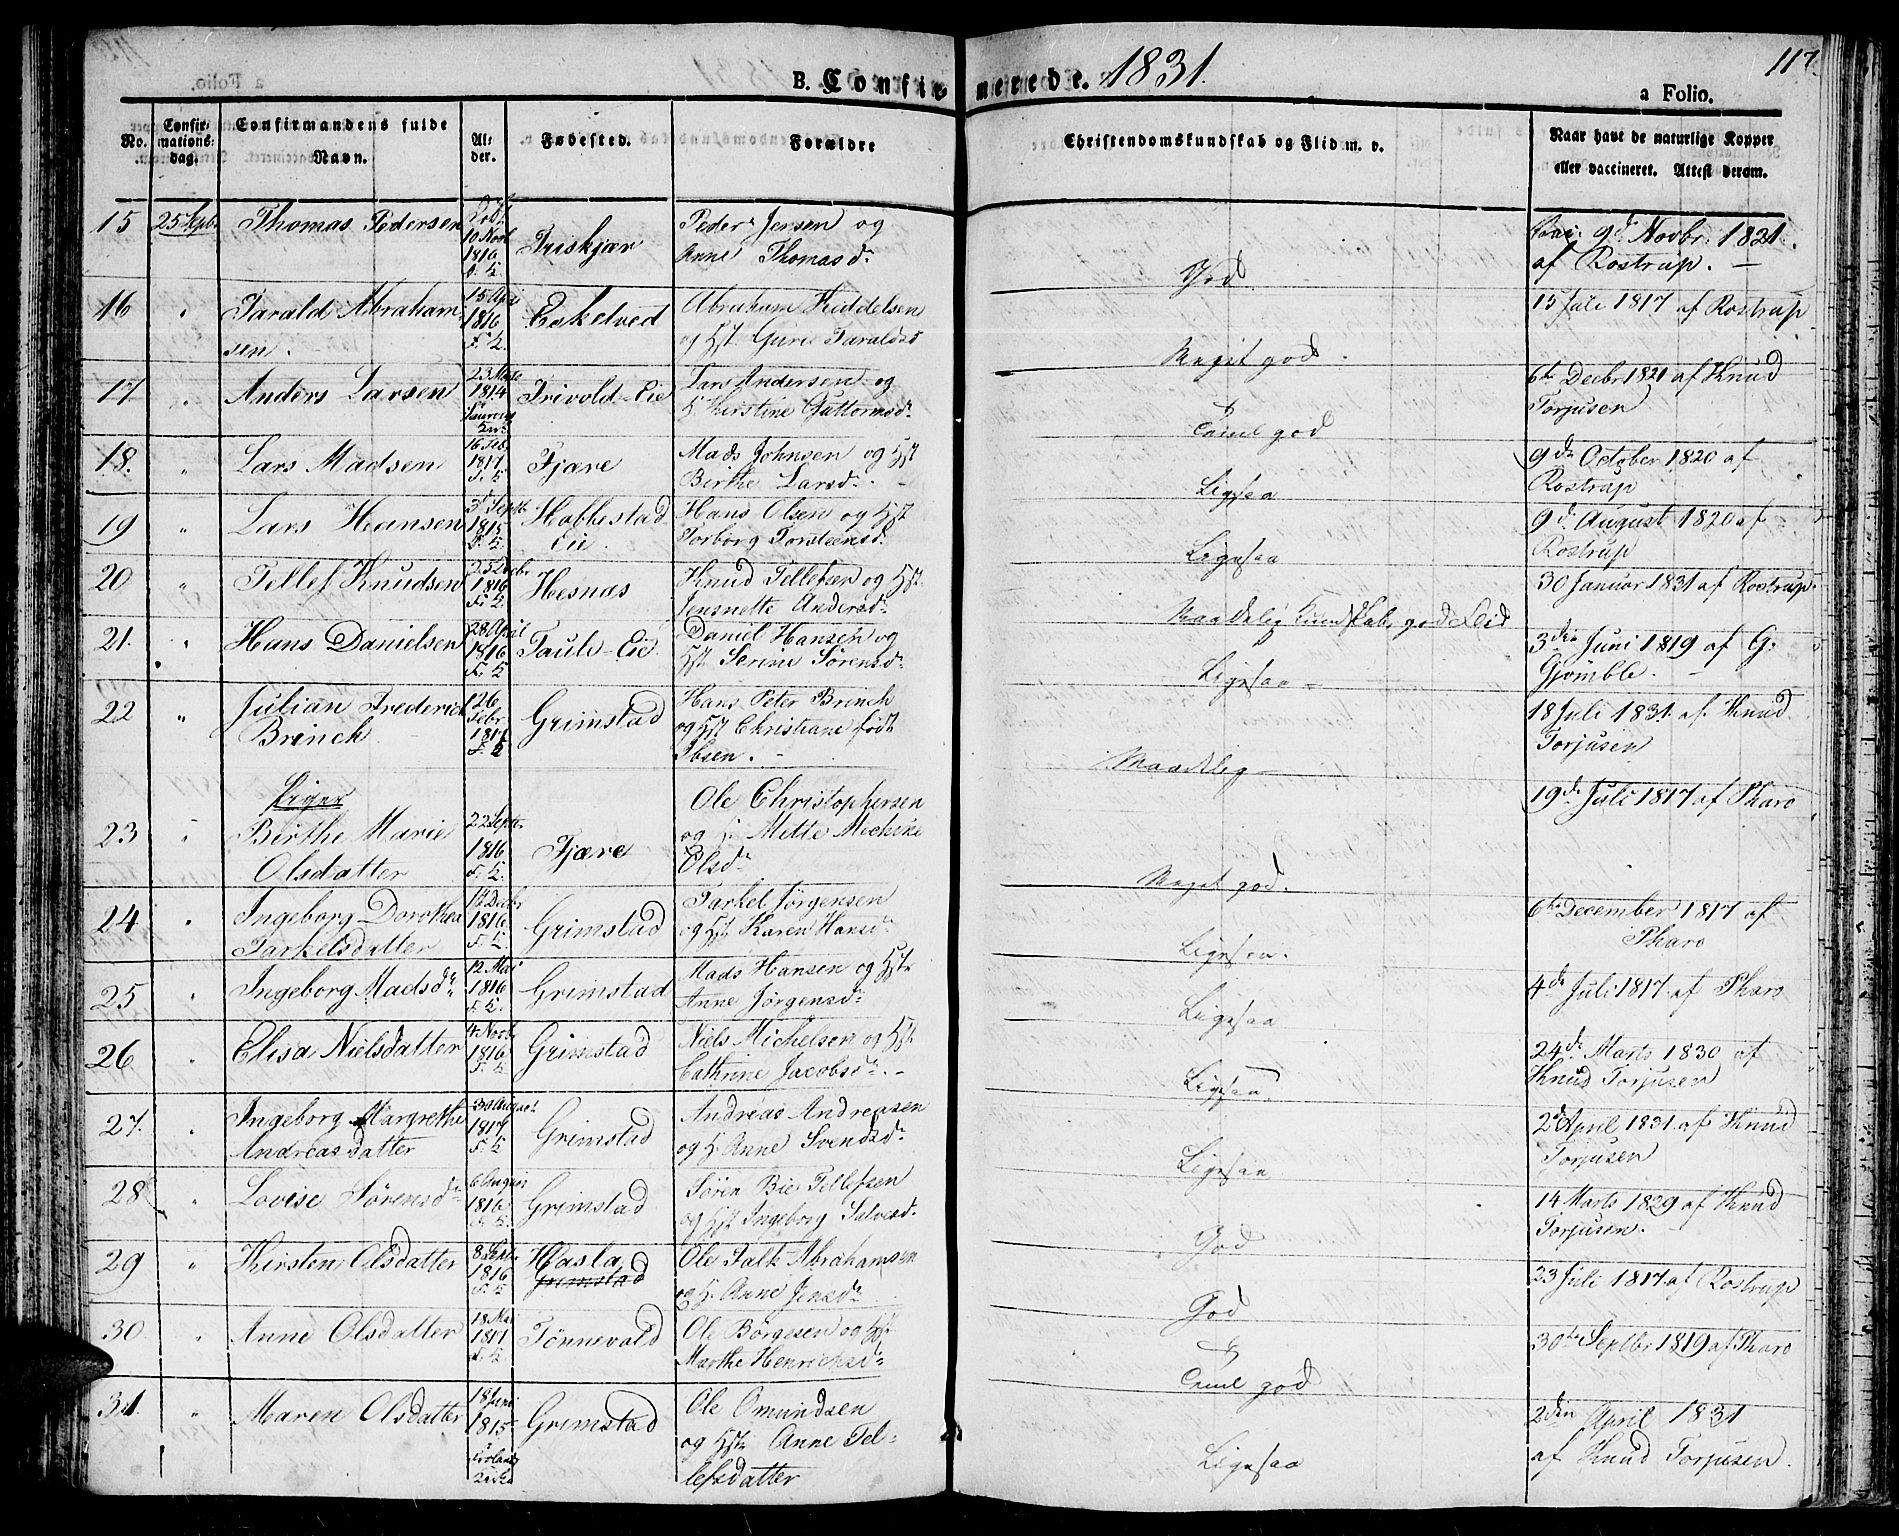 B. Confirmerede. 1831.
117.
a Folio.
No.
Confirmationsdag.
Confirmandens fulde Navn.
Alder.
Fødested.
Forældre
Christendomskundskab og Flid m. v.
Naar havt de naturlige Kopper eller vaccineret. Attest derom.
15 25 Septbr Thomas Pedersen
10 Novb 1816 Friskjær
Peder Jensen og
Anne Thomasd.
God.
9d. Novbr. 1821.
af Rostrup.
16 " Tarald Abraham
sen.
15 Apr 1816 Eskelved
Abraham Kiddelsen
og Hst. Guri Taraldsd
Meget god.
15 Juli 1817 af Rostrup
17 " Anders Larsen
1814 Frivold-Eie
Lars Andersen og
H Kirstine Guttormsd.
god
6te Decbr 1821 af Knud
Torjusen
18. " Lars Madsen
16 Feb 1817. Fjære
Mads Johnsen og Hst
Birthe Larsd.
Ligesaa
9de October 1820 af
Rostrup
19 " Lars Hansen
3d Septbr 1815 Habbestad
Eie.
Hans Olsen og Hst
Torborg Torsteensd.
Ligesaa
9d. August 1820 af
Rostrup
20 " Tellef Knudsen
1816 Hesnæs
Knud Tellefsen og Hst.
Jensnette Andersd.
Maadelig Kundskab, god Flid
30 Januar 1831 af Rostrup.
21. " Hans Danielsen
28 April 1816 Taule-Eie.
Daniel Hansen og
Hst Serine Sørensd.
Ligesaa
3die Juni 1819 af G.
Gjømble.
22 " Julian Frederich
Brinch
26 Febr 1817 Grimstad
Hans Peter Brinch
og Hst Christiane født
Ibsen.
Maadelig
18 Juli 1831. af Knud
Torjusen
Piger
23 " Birthe Marie
Olsdatter
22 Septr 1816. Fjære
Ole Christophersen
og H. Mette Mechike
Olsd.
Meget god.
19de Juli 1817 af Pharo
24 " Ingeborg Dorothea
Tarkelsdatter
Decbr 1816 Grimstad
Tarkel Jørgensen
og Hst Karen Hansd.
Ligesaa.
6te December 1817 af
Pharo
25 " Ingeborg Madsd.
12 Mai 1816 Grimstad
Mads Hansen og Hst
Anne Jørgensd.
Ligesaa
4de Juli 1817. af Pharo
26 " Elisa Nielsdatter
4. Novb 1816 Grimstad
Niels Michelsen og Hst
Cathrine Jacobsd.
Ligesaa.
24de Marts 1830 af
Knud Torjusen
27. " Ingeborg Margrethe
Andreasdatter
30 August 1817 Grimstad
Andreas Andreasen
og H. Anne Svendsd.
Ligesaa
2d April 1831. af Knud
Torjusen
28 " Lovise Sørensd.
6 August 1816 Grimstad
Søren Bie Tellefsen
og Hst Ingeborg Salvesd.
God
14 Marts 1829 af Knud
Torjusen.
29 " Kirsten Olsdatter
8 Septr 1816 Hasla
Grimstad
Ole Falk Abrahamsen
og H. Anne Jensd.
God
23 Juli 1817. af Rostrup
30 " Anne Olsdatter
18 Mai 1817 Tønnevald
Ole Børgesen og Hst
Marthe Henrichsd.
god
30te Septbr 1819 af Pharo
31. " Maren Olsdatter
18 Juni 1815 Grimstad
Ole Omundsen
og Hst Anne Tel-
lefsdatter
Ligesaa
2den April 1831
af Knud Torjusen.